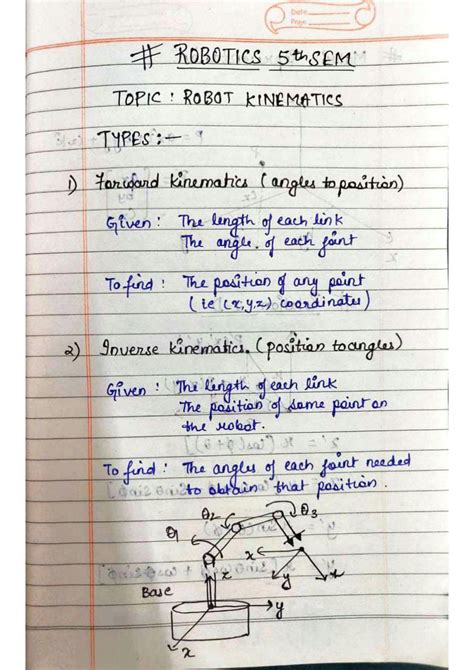 Date
Page
# ROBOTICS 5th SEM
TOPIC : ROBOT KINEMATICS
TYPES :-
1) Forward Kinematics (angles to position)
Given : The length of each link
The angle of each joint
To find : The position of any point
(ie (x,y,z) coordinates)
2) Inverse Kinematics. (position to angles)
Given : The length of each link
The position of some point on
the robot.
To find : The angles of each joint needed
to obtain that position.
θ1 θ2 θ3
x
z
y
x
Base
y
x